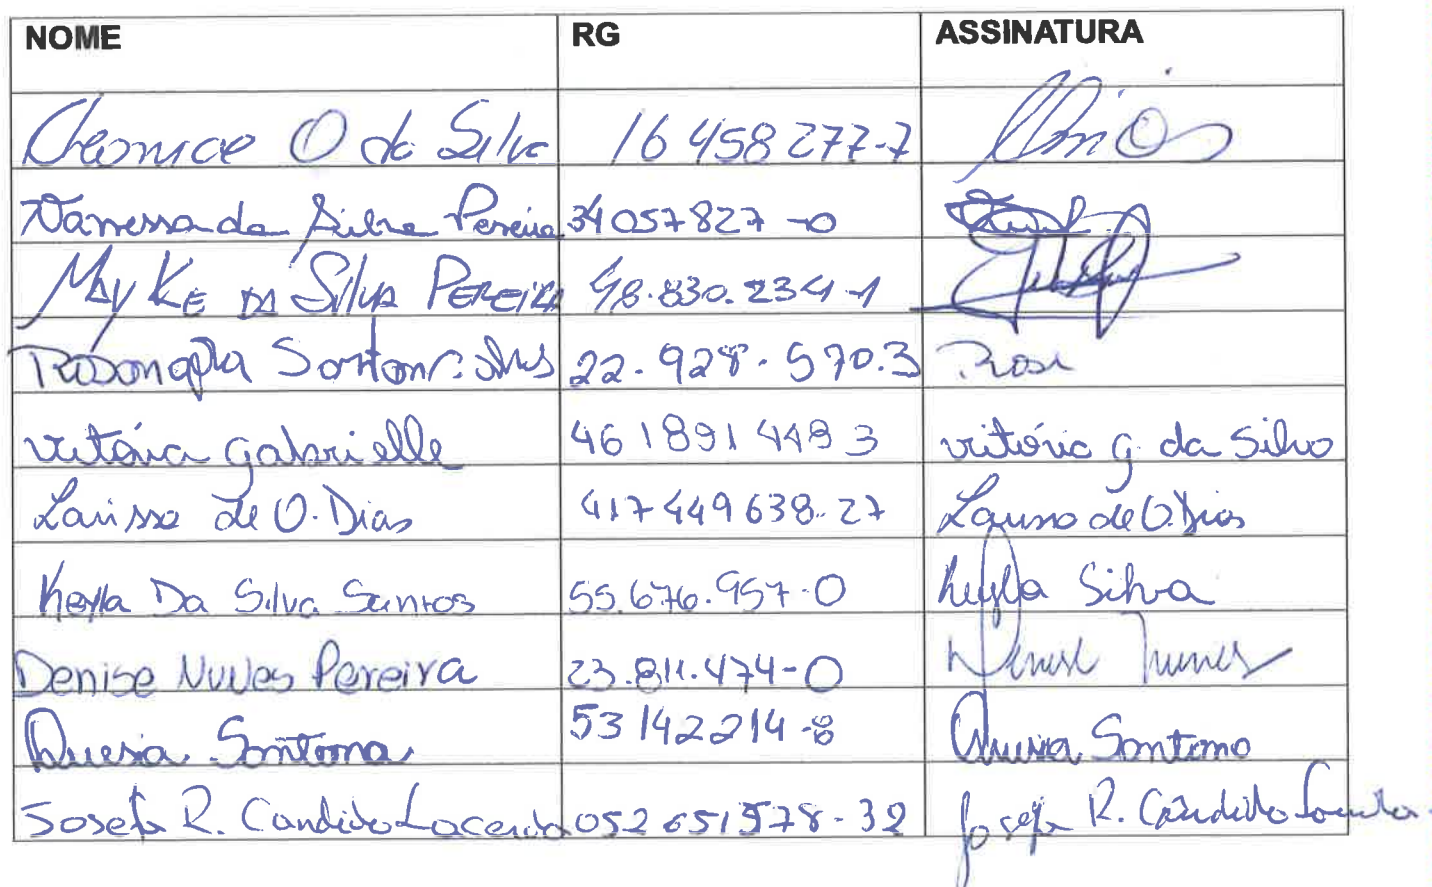 NOME RG ASSINATURA
Cleonice O da Silva 16 458 277-7
Vanessa da Silva Pereira 34057827-0
MAYKE DA Silva PEREIRA 48.830.234-1
Rosangela 22.928.570.3 Rose
vitória gabrielle 461891449 3 vitória g. da Silva
Larissa de O. Dias 417449638-27 Larissa de O. Dias
Keylla Da Silva Santos 55.676.957-0 Keylla Silva
Denise Nunes Pereira 23.811.474-0 Denise Nunes
Quesia Santana 53142214-8 Quesia Santana
Josefa R. Candido Lacerda 052651578-32 Josefa R. Candido Lacerda